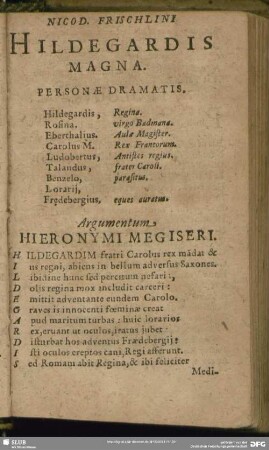 NICOD. FRISCHLINI
HILDEGARDIS
MAGNA.
PERSONÆ DRAMATIS.
Hildegardis, Regina.
Rosina. virgo Badmana.
Eberthalius. Aulæ Magister.
Carolus M. Rex Francorum.
Ludobertus, Antistes regius.
Talandus, frater Caroli.
Benzelo, parasitus.
Lorarij,
Frędebergius, eques auratus.
Argumentum
HIERONYMI MEGISERI.
HILDEGARDIM fratri Carolus rex mãdat &
Ius regni, abiens in bellum adversus Saxones.
Libidine hunc sed percitum nefari,
Dolis regina mox includit carceri:
Emittit adventante eundem Carolo.
Graves is innocenti fœminæ creat
Apud maritum turbas: huic lorarios
Rex, eruant ut oculos, iratus jubet
Disturbat hos adventus Frædebergij:
Isti oculos ereptos canis, Regi afferunt.
Sed Romam abit Regina, & ibi feliciter
Medi-
SLUB
DFG